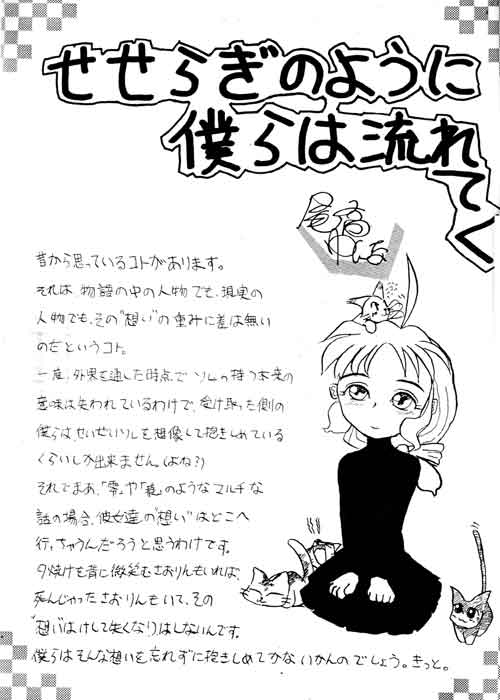 せせらぎのように
僕らは流れてく
昔から思っているコトがあります。
それは、物語の中の人物でも、現実の
人物でも、その"想い"の重みに差は無い
のだというコト。
一度、外界を通した時点でソレの持つ本来の
意味は失われているわけで、受け取った側の
僕らはせいぜいソレを想像して抱きしめている
くらいしか出来ません。(よね?)
それでまあ、「雫」や「痕」のようなマルチな
話の場合、彼女達の"想い"はどこへ
行っちゃうんだろうと思うわけです。
夕焼けを背に微笑むさおりんもいれば、
死んじゃったさおりんもいて、その
"想い"はけして失くなりはしないんです。
僕らはそんな想いを忘れずに抱きしめてかないかんのでしょう。きっと。